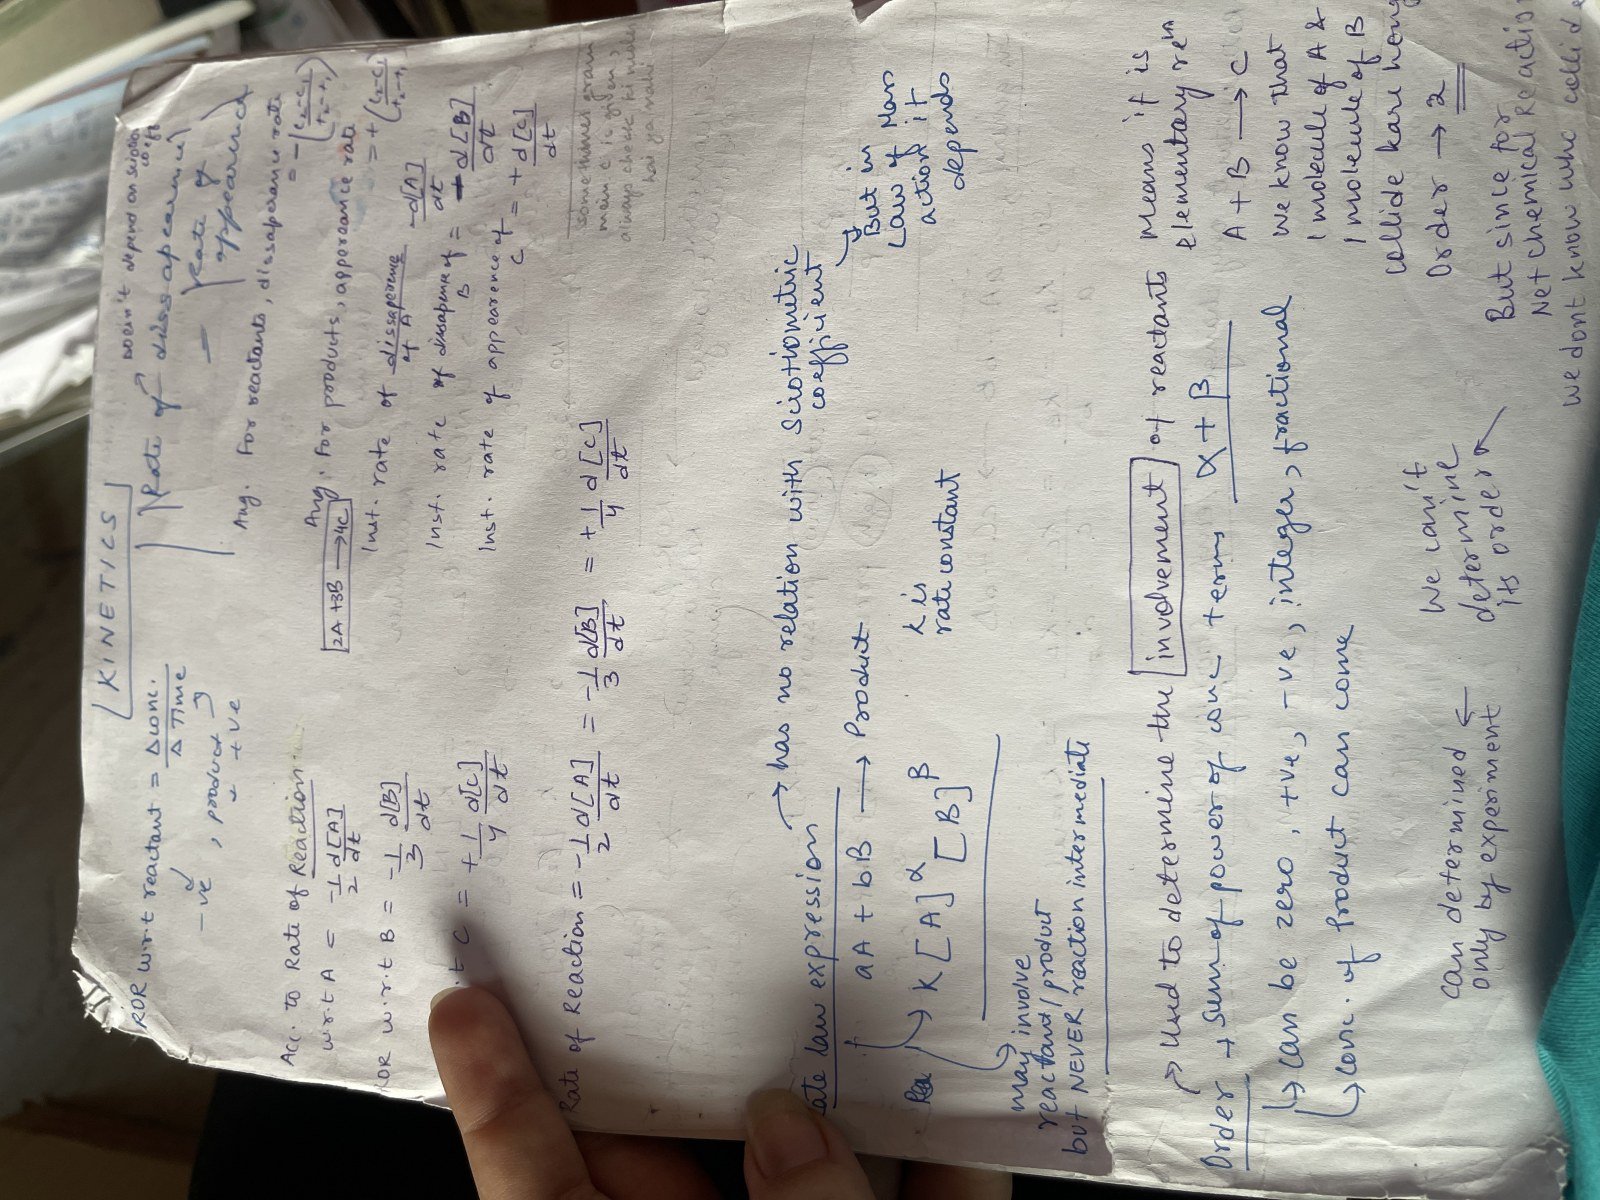 KINETICS
ROR w.r.t reactant = Δconc. / Δ Time
-ve , product
+ve
doesn't depend on
Rate of dissapearance
= Rate of appearance
Avg. For reactants, dissaperance rate
= -(c₂-c₁ / t₂-t₁)
Avg. For products, apperance rate = +(c₂-c₁ / t₂-t₁)
Acc. to Rate of Reaction
w.r.t A = -1/2 d[A]/dt
ROR w.r.t B = -1/3 d[B]/dt
.t C = +1/4 d[C]/dt
2A+3B → 4C
Inst. rate of dissaperence of A -d[A]/dt
Inst. rate of dissaperence of B = -d[B]/dt
Inst. rate of appearence of C = +d[C]/dt
sometimes
main is given,
always check
Rate of Reaction = -1/2 d[A]/dt = -1/3 d[B]/dt = +1/4 d[C]/dt
ate law expression → has no relation with Sciotiometric coefficient
But in Law of Mass action it depends
aA + bB → Product
K[A]^α [B]^β
k is rate constant
may involve
reactant/product
but NEVER reaction intermediate
Used to determine the involvement of reactants
Order → sum of power of conc terms α + β
→ can be zero, +ve, -ve, integer, fractional
→ conc. of Product can come
can determined ←
only by experiment
We can't
determine
its order
means if is
elementary rexn
A + B → C
we know that
1 molecule of A &
1 molecule of B
collide kare hong
Order → 2
But since for
Net chemical Reaction
we dont know who collide